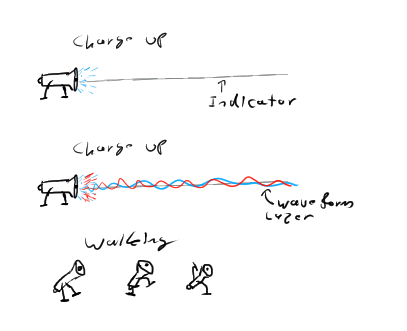 Charge up
Indicator
Charge up
waveform
Lazer
Walking